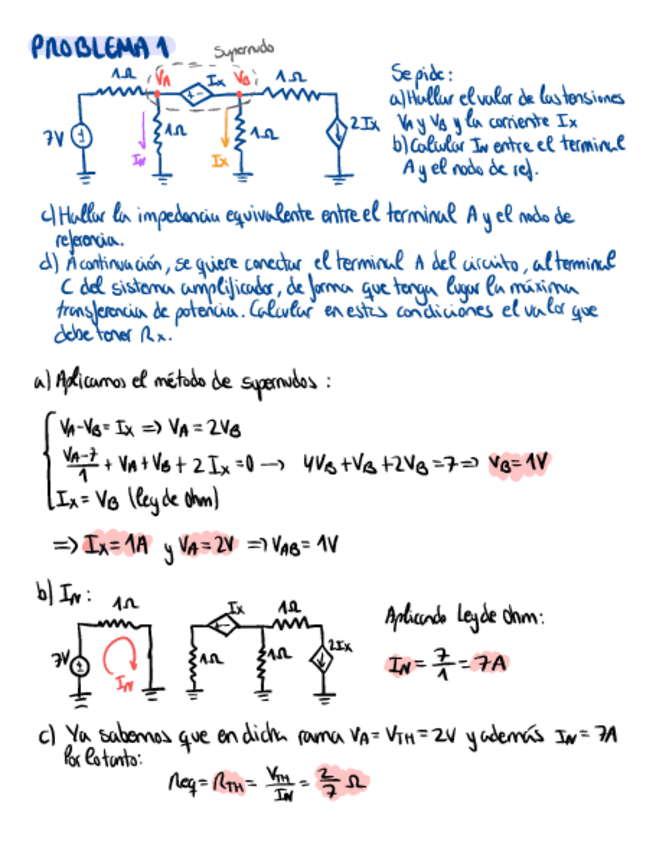 PROBLEMA 1
Supernudo
1Ω VA Ix VB 1Ω
7V 1Ω 1Ω 2Ix
IN Ix
Se pide:
a) Hallar el valor de las tensiones
VA y VB y la corriente Ix
b) Calcular IN entre el terminal
A y el nodo de ref.
c) Hallar la impedancia equivalente entre el terminal A y el nodo de
referencia.
d) A continuación, se quiere conectar el terminal A del circuito, al terminal
C del sistema amplificador, de forma que tenga lugar la máxima
transferencia de potencia. Calcular en estas condiciones el valor que
debe tener Rx.
a) Aplicamos el método de supernudos:
VA-VB = Ix => VA = 2VB
VA-7/1 + VA + VB + 2Ix = 0 → 4VB + VB + 2VB = 7 => VB = 1V
Ix = VB (ley de ohm)
=> Ix = 1A y VA = 2V => VAB = 1V
b) IN:
1Ω Ix 1Ω
7V IN 1Ω 1Ω 2Ix
Aplicando Ley de Ohm:
IN = 7/1 = 7A
c) Ya sabemos que en dicha rama VA = VTH = 2V y además IN = 7A
Por lo tanto:
Req = RTH = VTH/IN = 2/7 Ω